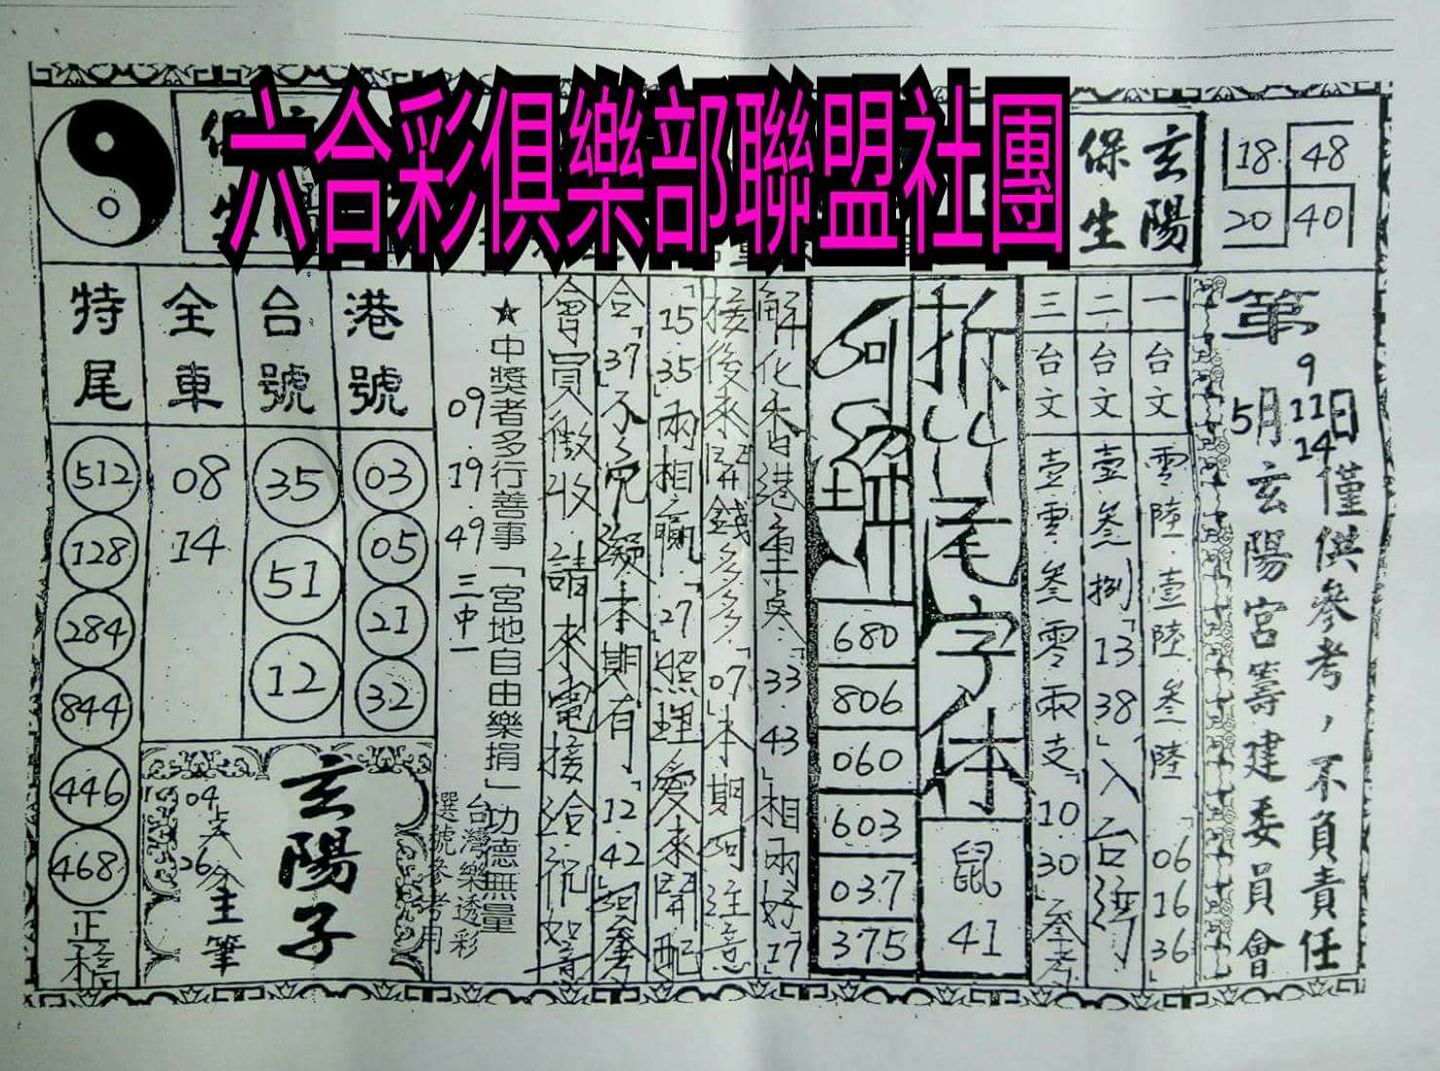 六合彩俱樂部聯盟社團
玄陽
保生
18 48
20 40
第
9
5月11日
14
僅供參考，不負責任
玄陽宮籌建委員會
一
台文
零陸．壹陸．叁陸
「06 16 36」
二
台文
壹叁．叁捌「13 38」入台
三
台文
壹零．叁零兩支「10 30」參考
拆
尾字体
鼠
41
680
806
060
603
037
375
解化本港重点「33．43」相兩好「17」
接後來開錢多多．「07」本期可注意
「15．35」兩相贏．「27」照理愛來鬪配
合「37」不可疑本期有「12．42」可參
會員徵收．請來電接洽．祝如意
★中獎者多行善事「宮地自由樂捐」功德無量
09．19．49 三中一
台灣樂透彩
選號參考用
港號
03
05
21
32
台號
35
51
12
全車
08
14
特尾
512
128
284
844
446
468
正
玄陽子
主筆
04
26